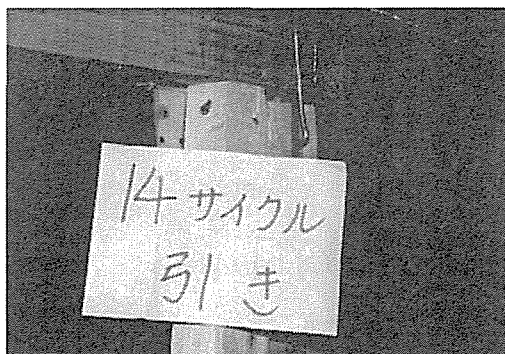 14サイクル
引き